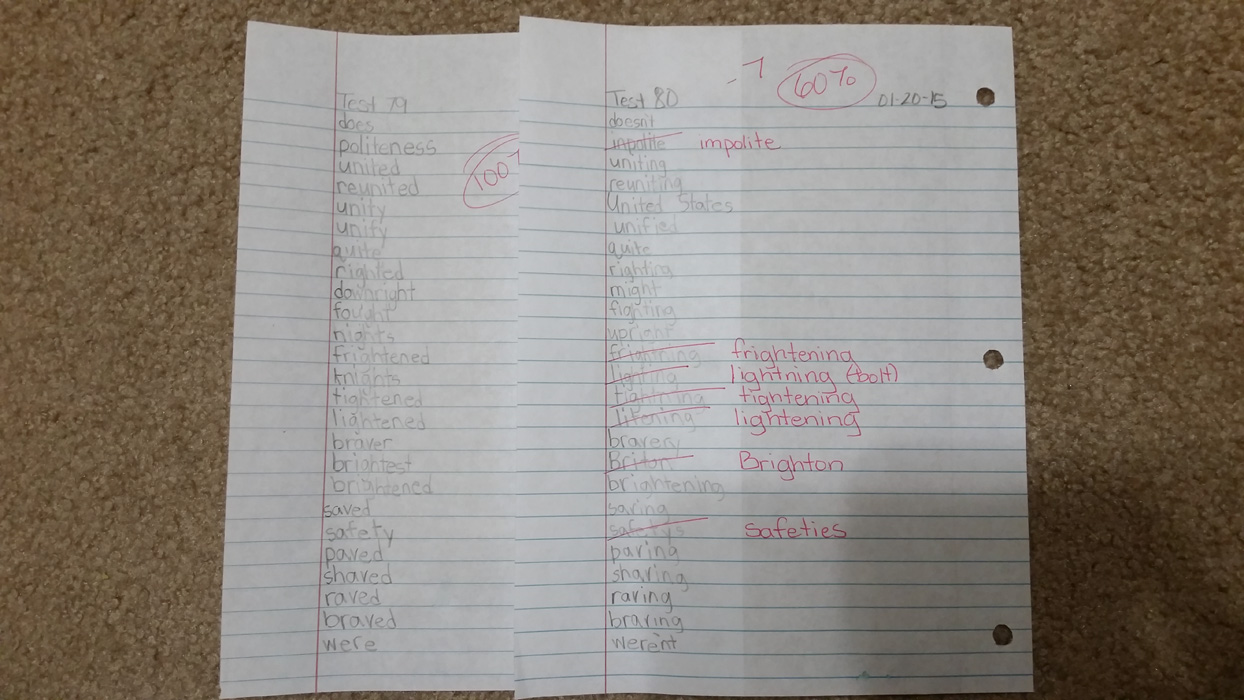 Test 79
does
politeness
united
reunited
unity
unify
quite
righted
downright
fought
nights
frightened
knights
tightened
lightened
braver
brightest
brightened
saved
safety
paved
shaved
raved
braved
were
100%
-7
60%
Test 80 01-20-15
doesn't
inpolite impolite
uniting
reuniting
United States
unified
quite
righting
might
fighting
upright
frightning frightening
lighting lightning (bolt)
tightning tightening
litening lightening
bravery
Briton Brighton
brightening
saving
safetys safeties
paving
shaving
raving
braving
weren't